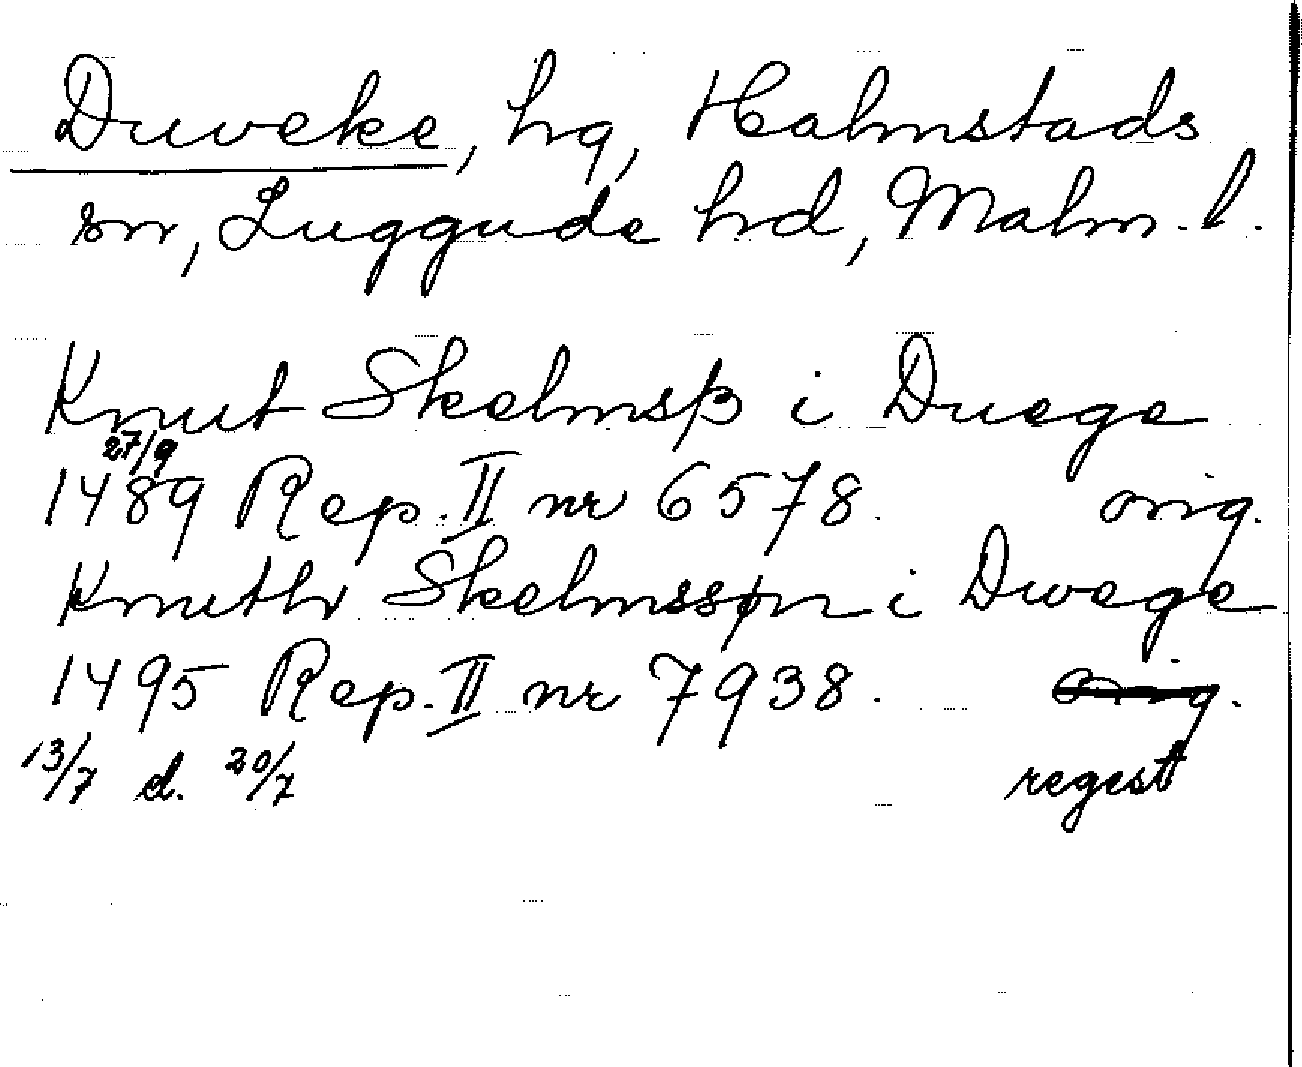 Duveke, hg, Halmstads
sn, Luggude hd, Malm. l.
Knut Skelmsß i Duege
27/9
1489 Rep. II nr 6578. orig.
Knuth Skelmsspn i Dwege
1495 Rep. II nr 7938. orig.
13/7 d. 20/7 regest